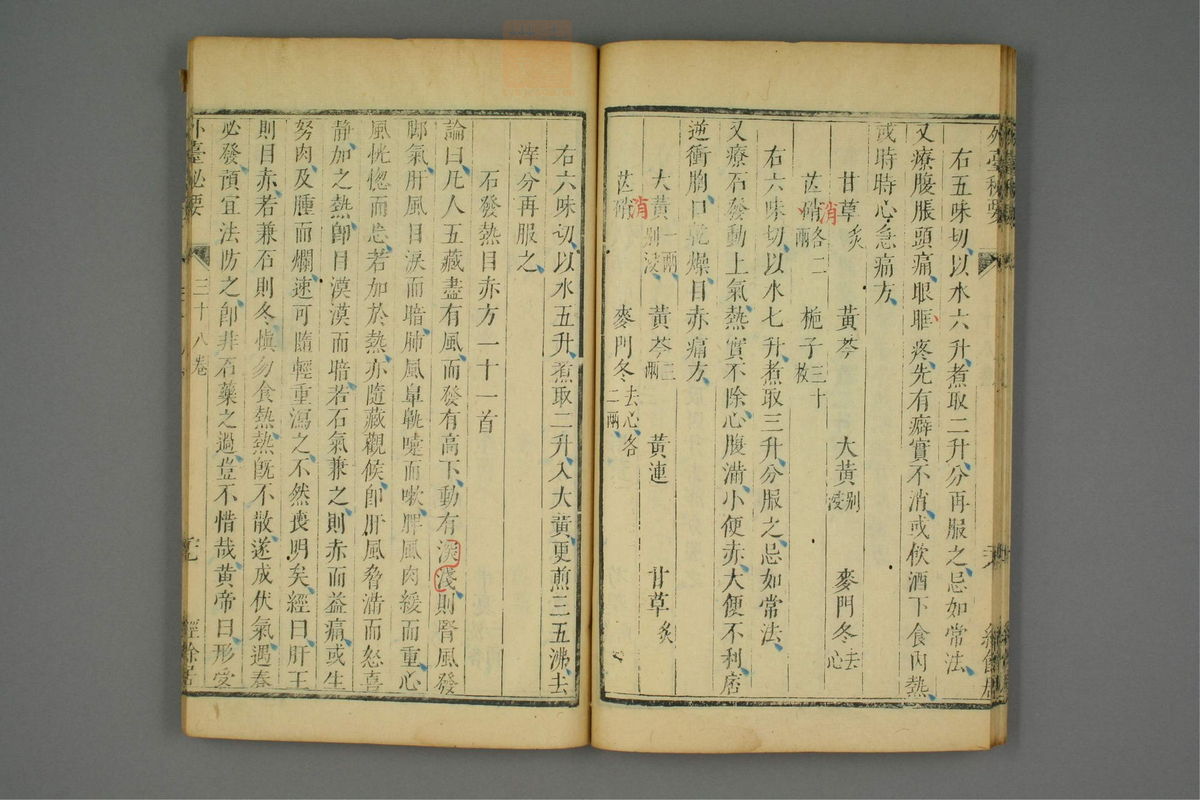 右五味切以水六升煮取二升分再服之忌如常法
又療腹脹頭痛眼眶疼先有癖實不消或飲酒下食內熱
或時時心急痛方
甘草炙 黃芩 大黃別浸 麥門冬去心
芒硝各二兩 梔子三十枚
消
右六味切以水七升煮取三升分服之忌如常法
又療石發動上氣熱實不除心腹滿小便赤大便不利痞
逆衝胸口乾燥目赤痛方
大黃一兩別浸 黃芩三兩 黃連 甘草炙
消
芒硝 麥門冬去心各二兩
右六味切以水五升煮取二升入大黃更煎三五沸去
滓分再服之
石發熱目赤方一十一首
論曰凡人五藏盡有風而發有高下動有深淺則腎風發
腳氣肝風目淚而暗肺風鼻䶊嚏而嗽脾風肉緩而重心
風恍惚而忘若加於熱亦隨藏觀候卽肝風脅滿而怒喜
静加之熱卽目漠漠而暗若石氣兼之則赤而益痛或生
努肉及腫而爛速可隨輕重瀉之不然喪明矣經曰肝王
則目赤若兼石則冬慎勿食熱熱旣不散遂成伏氣遇春
必發預宜法防之卽非石藥之過豈不惜哉黃帝曰形受
外臺祕要 三十八卷 經餘居